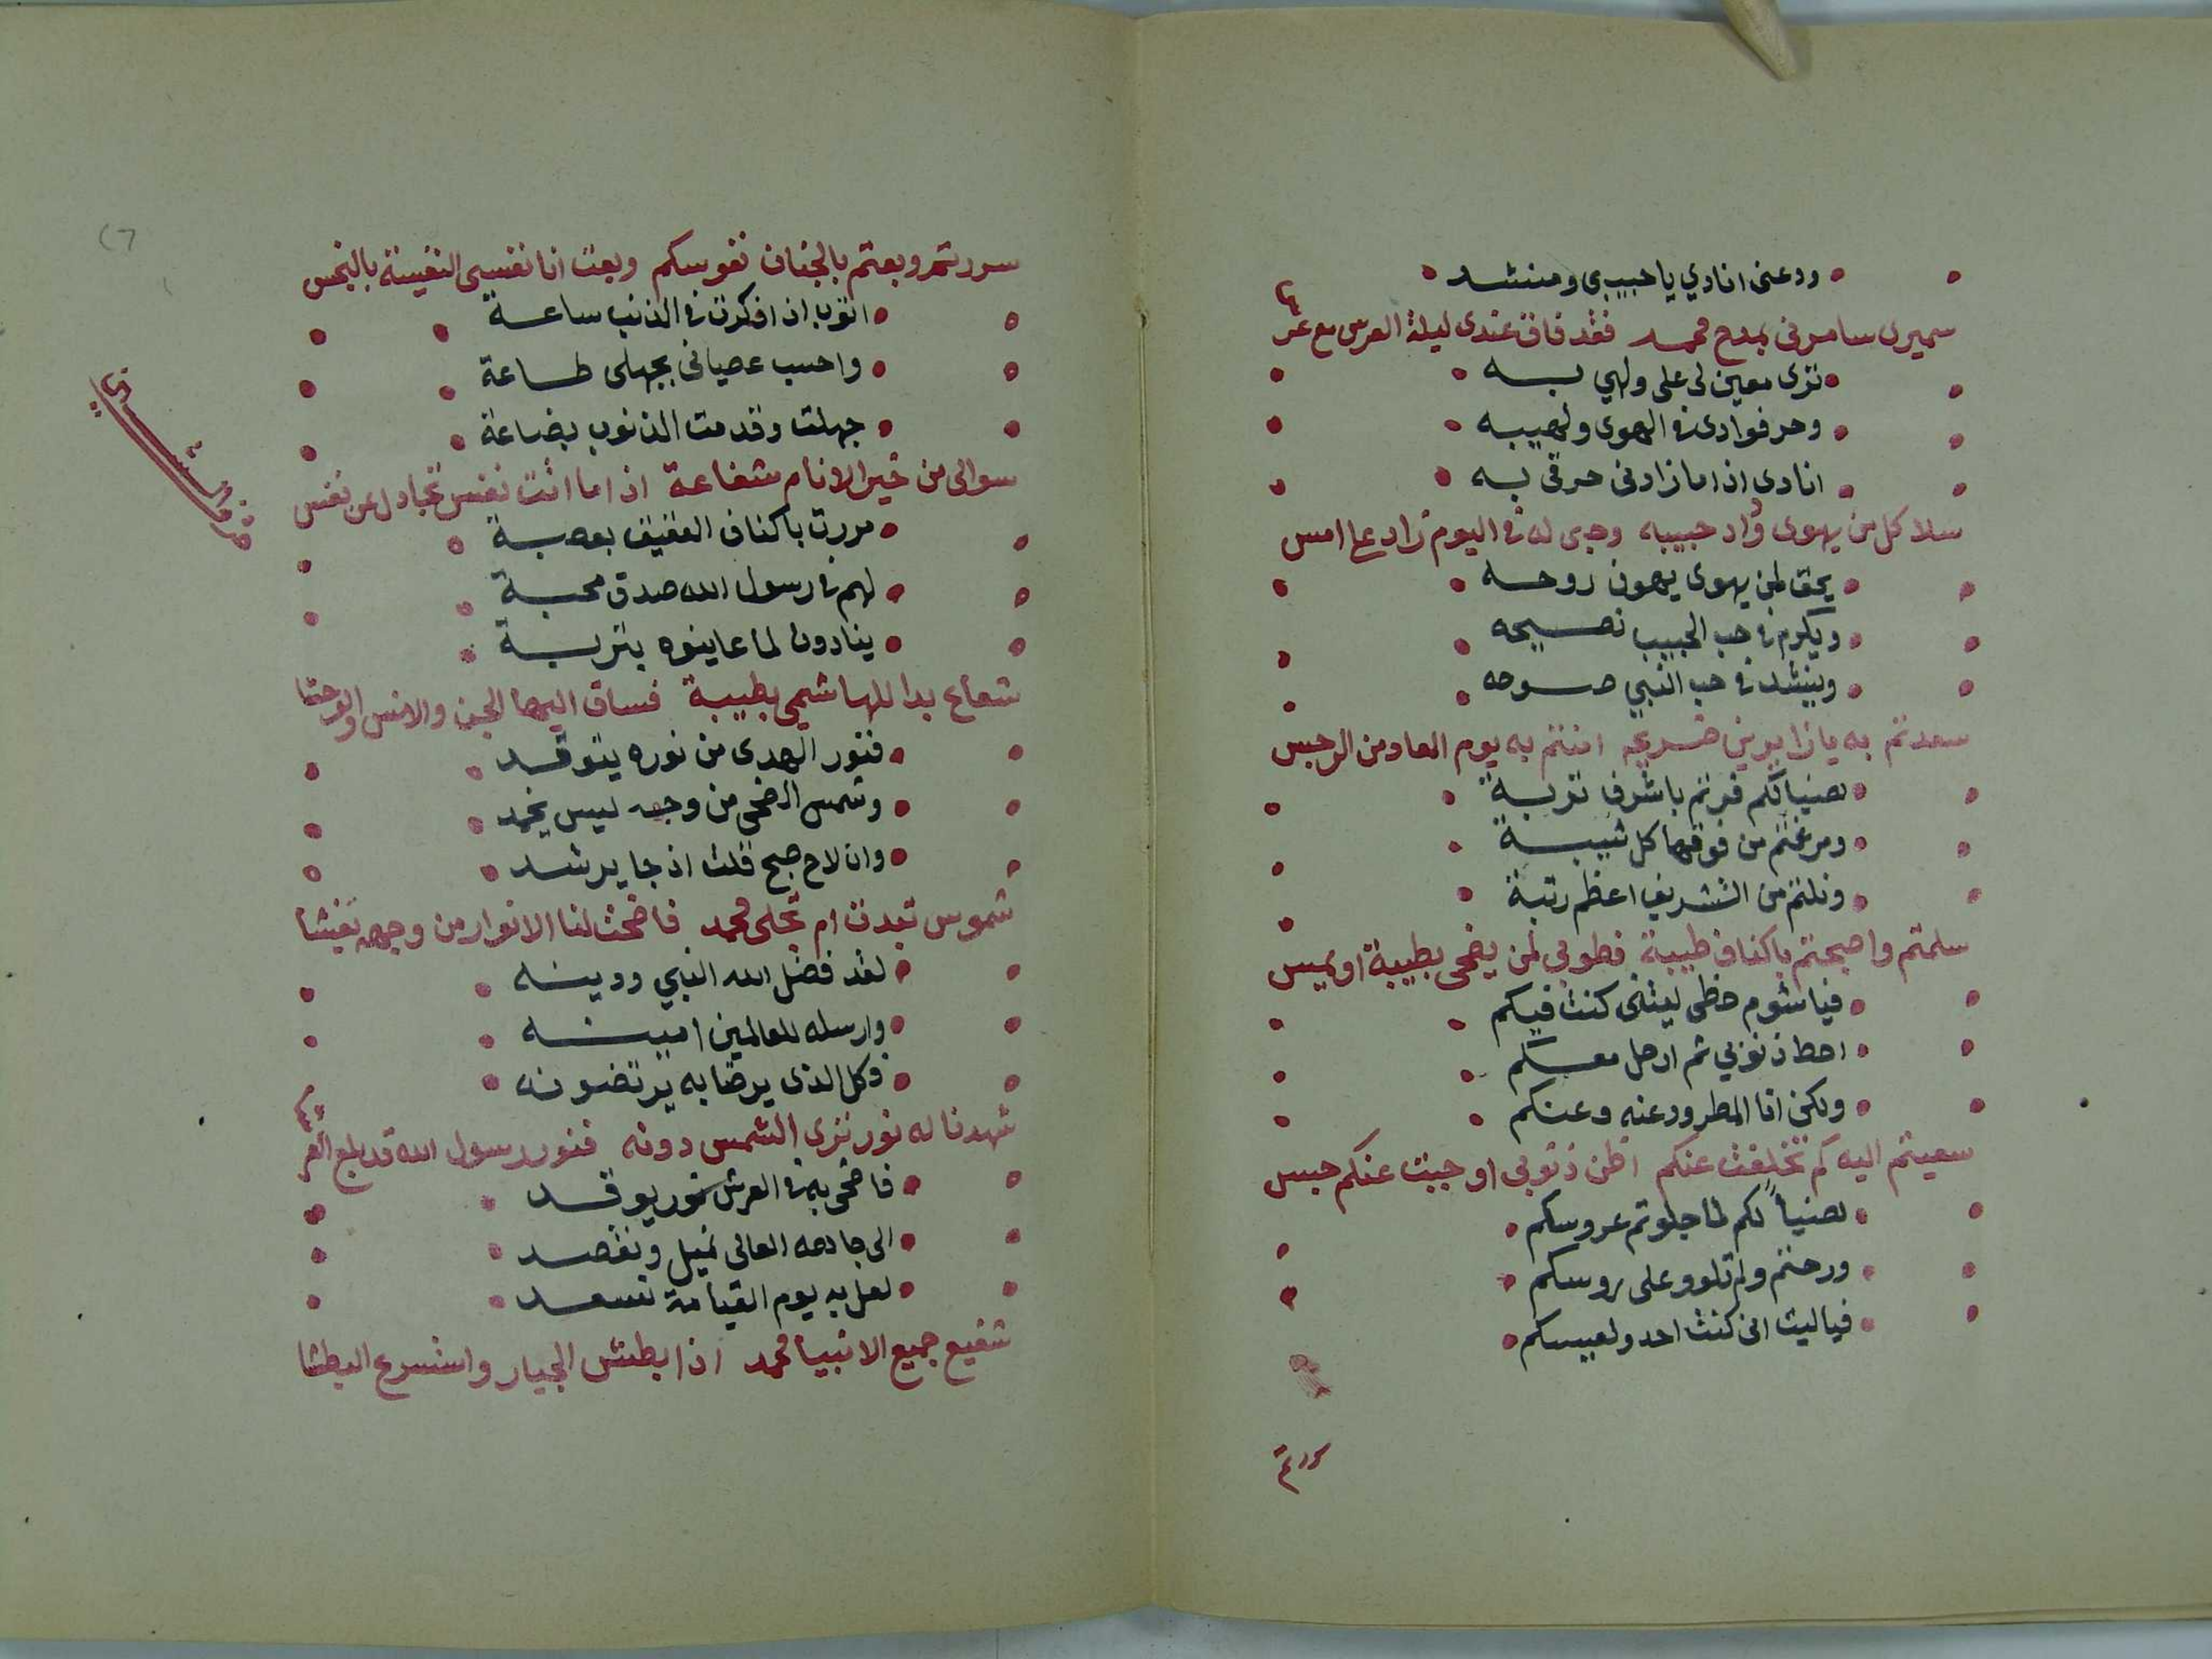 ودعنى انادي يا حبيبى ومنشد
سميرى سامرنى بمدح محمد فقد فاق عندى ليلة العرس مع عر
ترى معين لى على ولهي به
وحر فوادى فى الهوى ولهيبه
انادى اذا ما زادنى حرقى به
سلا كل من يهوى وٌاد حبيبه وجبى له فى اليوم زاد على امس
يحق لمن يهوى يهون روحه
ويكرم فى حب الحبيب نصيحه
وينشد فى حب النبي صوحه
سعدتم به يا زايرين ضريحه امنتم به يوم المعاد من الرجس
هنيا لكم فزتم باشرف تربة
ومرغتم من فوقها كل شيبة
ونلتم من التشريف اعظم رتبة
سلمتم واصبحتم باكناف طيبة فطوبى لمن يضحى بطيبة او يمس
فيا شوم حظى ليتنى كنت فيكم
احط ذنوبي ثم ارحل معكم
ولكن انا المطرود عنه وعنكم
سعيتم اليه كم تخلفت عنكم اظن ذنوبى اوجبت عنكم حبس
هنياً لكم لما جلوتم عروسكم
ورحتم ولم تلوو على روسكم
فيا ليت انى كنت احدو لعيسكم
سررتم وبعتم بالجنان نفوسكم وبعت انا نفسى النفيسة بالبخس
اتوب اذا فكرت فى الذنب ساعة
واحسب عصيانى بجهلى طاعة
جهلت وقدمت الذنوب بضاعة
سوالى من خير الانام شفاعة اذا ما اتت نفس تجادل عن نفس
حرف الشين
مررت باكناف العقيق بعصبة
لهم فى رسول الله صدق محبة
ينادون لما عاينوه بتربة
شعاع بدا للهاشمى بطيبة فساق اليها الجن والانس والوحشا
فنور الهدى من نوره يتوقد
وشمس الضحى من وجهه ليس يخمد
وان لاح صبح قلت اذ جا يرشد
شموس تبدت ام تجلى محمد فاضحت لنا الانوار من وجهه تغشا
لقد فضل الله النبي ودينه
وارسله للعالمين امينه
وكل الذى يرضا به يرتضونه
شهدنا له نور نرى الشمس دونه فنور رسول الله قد بلغ العر
فاضحى به فى العرش نور يوقد
الى جاهه العالى نميل ونقصد
لعل به يوم القيامة نسعد
شفيع جميع الانبيا محمد اذا بطش الجبار واستسرع البطشا